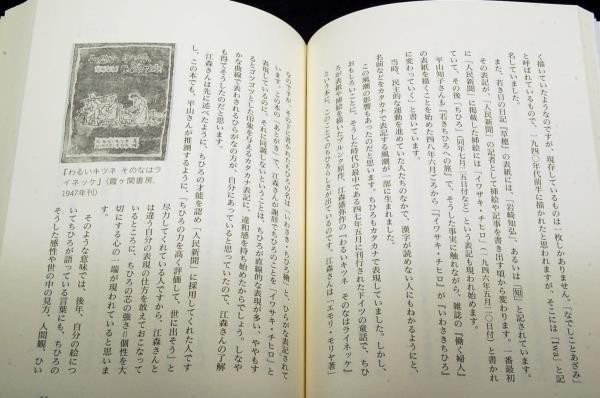 く描いていたようなのですが、現存しているものは一枚しかありません。『なでしことあざみ』
と呼ばれているもので、一九四〇年代前半に描かれたと思われますが、そこには「Iwa」と記
名していました。
また、若き日の日記『草穂』の表紙には、「岩崎知弘」、あるいは「知」と記されています。
その表記が、「人民新聞」の記者として挿絵や記事を書き出す頃から変わります。一番最初
に「人民新聞」に掲載した挿絵には「イワサキ・チヒロ」（一九四六年五月二〇日付）と書かれ
ていて、その後「ちひろ」（同年七月二五日付など）という表記も現われ始めます。
平山知子さんも『若きちひろへの旅』で、そうした事実に触れながら、雑誌の『働く婦人』
の表紙を描くことを始めた四八年八月ごろから「『イワサキ・チヒロ』が『いわさきちひろ』
に変わっていく」と書いています。
当時、民主的な運動を進めていた人たちのなかで、漢字が読めない人にもわかるようにと、
名前などをカタカナで表記する風潮が一部に生まれました。
この風潮の影響もあったのだと思います。ちひろもカタカナで表現していました。しかし、
おもしろいことに、そうした時代の最中である四七年五月に刊行されたドイツの童話で、ちひ
ろが表紙や挿絵を描いたグルンク原作、江森盛弥作の『わるいキツネ そのなはライネッケ』
という本に、このことでのちひろらしさが出ているのです。江森さんは「エモリ・モリヤ著」
なのですが、その下に書かれたちひろの名は「いわさき・ちひろ繪」と、ひらがな表記されて
います。この本の「あとがき」で、江森さんが謝辞でちひろのことを「イワサキ・チヒロ」と
表現しているのに、それに同調しないということは、ちひろが直線的な表現が多い、ややもす
るとゴツゴツとした印象を与えるカタカナ表記に、違和感を持ち始めたからでしょう。しなや
かな曲線で表わされるひらがなの方が、自分にあっていると思っていたので、江森さんの了解
も得てそうしたのだと思います。
江森さんは先に述べたように、ちひろの才能を認め「人民新聞」に採用してくれた人です
し、この本でも、平山さんが推測するように、「ちひろの力を高く評価して、世に出そう」と
尽力してくれている人ですから、江森さんと
は違う自分の表現の仕方を敢えておこなって
いるところに、ちひろの芯の強さ＝個性を大
切にする心の一端が現われていると思いま
す。
そのような意味では、後年、自分の絵につ
いてちひろが語っている言葉にも、ちひろの
そうした感性や世の中の見方、人間観、ひい
『わるいキツネ そのなはラ
イネッケ』（霞ヶ関書房、
1947年刊）